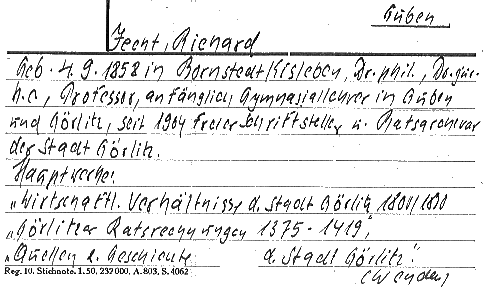 Guben
Jecht, Richard
Geb. 4.9.1858 in Bornstedt/Eisleben, Dr. phil., Dr. jur.
h.c., Professor, anfänglich Gymnasiallehrer in Guben
und Görlitz, seit 1904 freier Schriftsteller u. Ratsarchivar
der Stadt Görlitz.
Hauptwerke:
"Wirtschaftl. Verhältnisse d. Stadt Görlitz
"Görlitzer Ratsrechnungen 1375-1419",
"Quellen z. Geschichte d. Stadt Görlitz".
Reg. 10. Stichnote. 1. 50, 232 000. A. 803, S. 4062